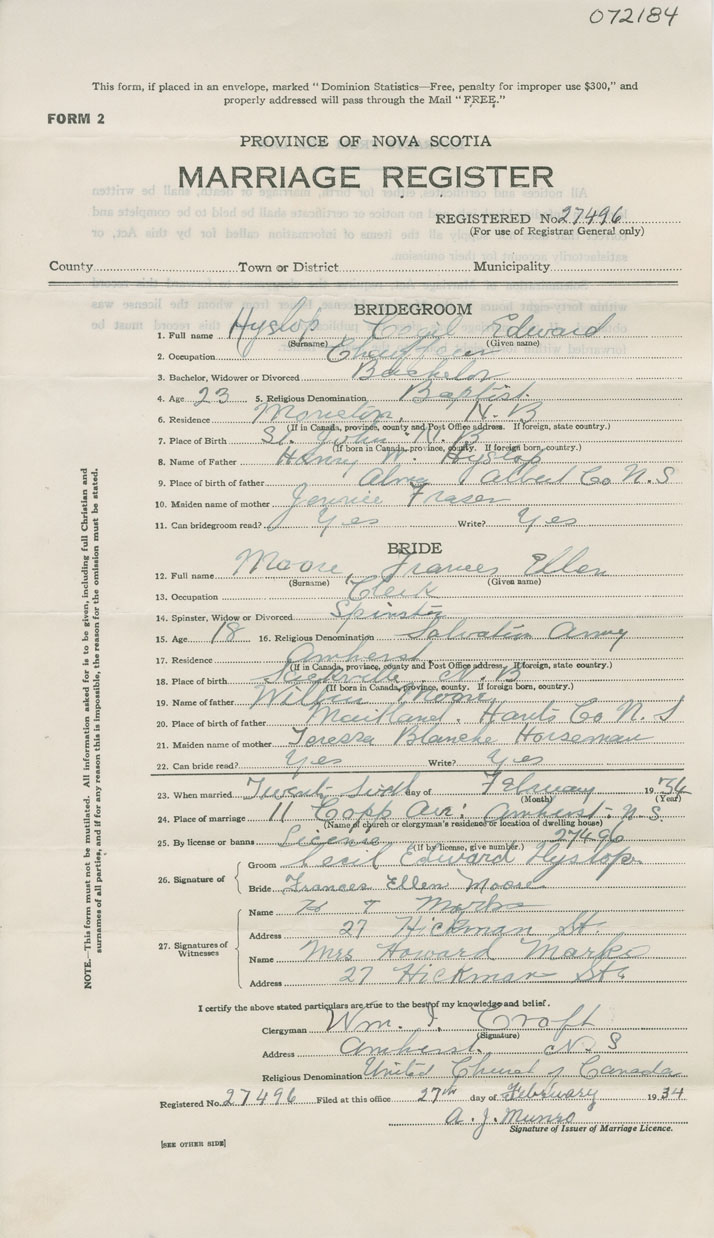 072184
This form, if placed in an envelope, marked "Dominion Statistics—Free, penalty for improper use $300," and
properly addressed will pass through the Mail "FREE."
FORM 2
PROVINCE OF NOVA SCOTIA
MARRIAGE REGISTER
REGISTERED No. 27496
(For use of Registrar General only)
County Town or District Municipality
BRIDEGROOM
1. Full name Hyslop Cecil Edward
(Surname) (Given name)
2. Occupation Chauffeur
3. Bachelor, Widower or Divorced Bachelor
4. Age 23 5. Religious Denomination Baptist
6. Residence Moncton, N.B
(If in Canada, province, county and Post Office address. If foreign, state country.)
7. Place of Birth St. John N.B
(If born in Canada, province, county. If foreign born, country.)
8. Name of Father Henry W. Hyslop
9. Place of birth of father Alma Albert Co N.S
10. Maiden name of mother Jennie Fraser
11. Can bridegroom read? Yes Write? Yes
BRIDE
12. Full name Moore, Frances Ellen
(Surname) (Given name)
13. Occupation Clerk
14. Spinster, Widow or Divorced Spinster
15. Age 18 16. Religious Denomination Salvation Army
17. Residence Amherst
(If in Canada, province, county and Post Office address, If foreign, state country.)
18. Place of birth Sackville N.B
(If born in Canada, province, county. If foreign born, country.)
19. Name of father Moore
20. Place of birth of father Maitland, Hants Co N.S
21. Maiden name of mother Teressa Blanche Horseman
22. Can bride read? Yes Write? Yes
23. When married Twenty Sixth day of February 1934
(Month) (Year)
24. Place of marriage 11 Copp Ave: Amherst N.S.
(Name of church or clergyman's residence or location of dwelling house)
25. By license or banns License 27496
(If by license, give number.)
26. Signature of Groom Cecil Edward Hyslop
Bride Frances Ellen Moore
27. Signatures of Witnesses Name H T Marks
Address 27 Hickman St.
Name Mrs Howard Marks
Address 27 Hickman St.
I certify the above stated particulars are true to the best of my knowledge and belief.
Clergyman Wm. Croft
(Signature)
Address Amherst, N.S
Religious Denomination United Church of Canada
Registered No. 27496 Filed at this office 27th day of February 1934
A. J. Munro
Signature of Issuer of Marriage Licence.
[SEE OTHER SIDE]
NOTE.—This form must not be mutilated. All information asked for is to be given, including full Christian and
surnames of all parties, and if for any reason this is impossible, the reason for the omission must be stated.